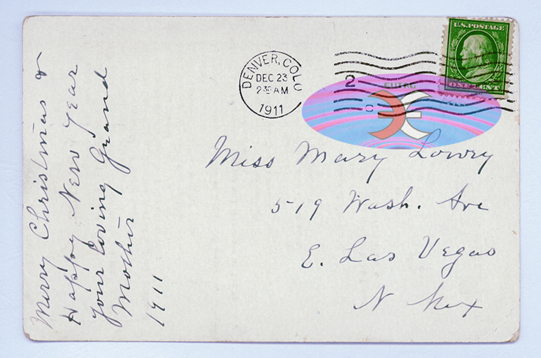 Merry Christmas &
Happy New Year
Your loving Grand
Mother
1911
DENVER, COLO
DEC 23
1911
2
U.S. POSTAGE
ONE CENT
Miss Mary Lowry
519 Wash. Ave
E. Las Vegas
N Mex